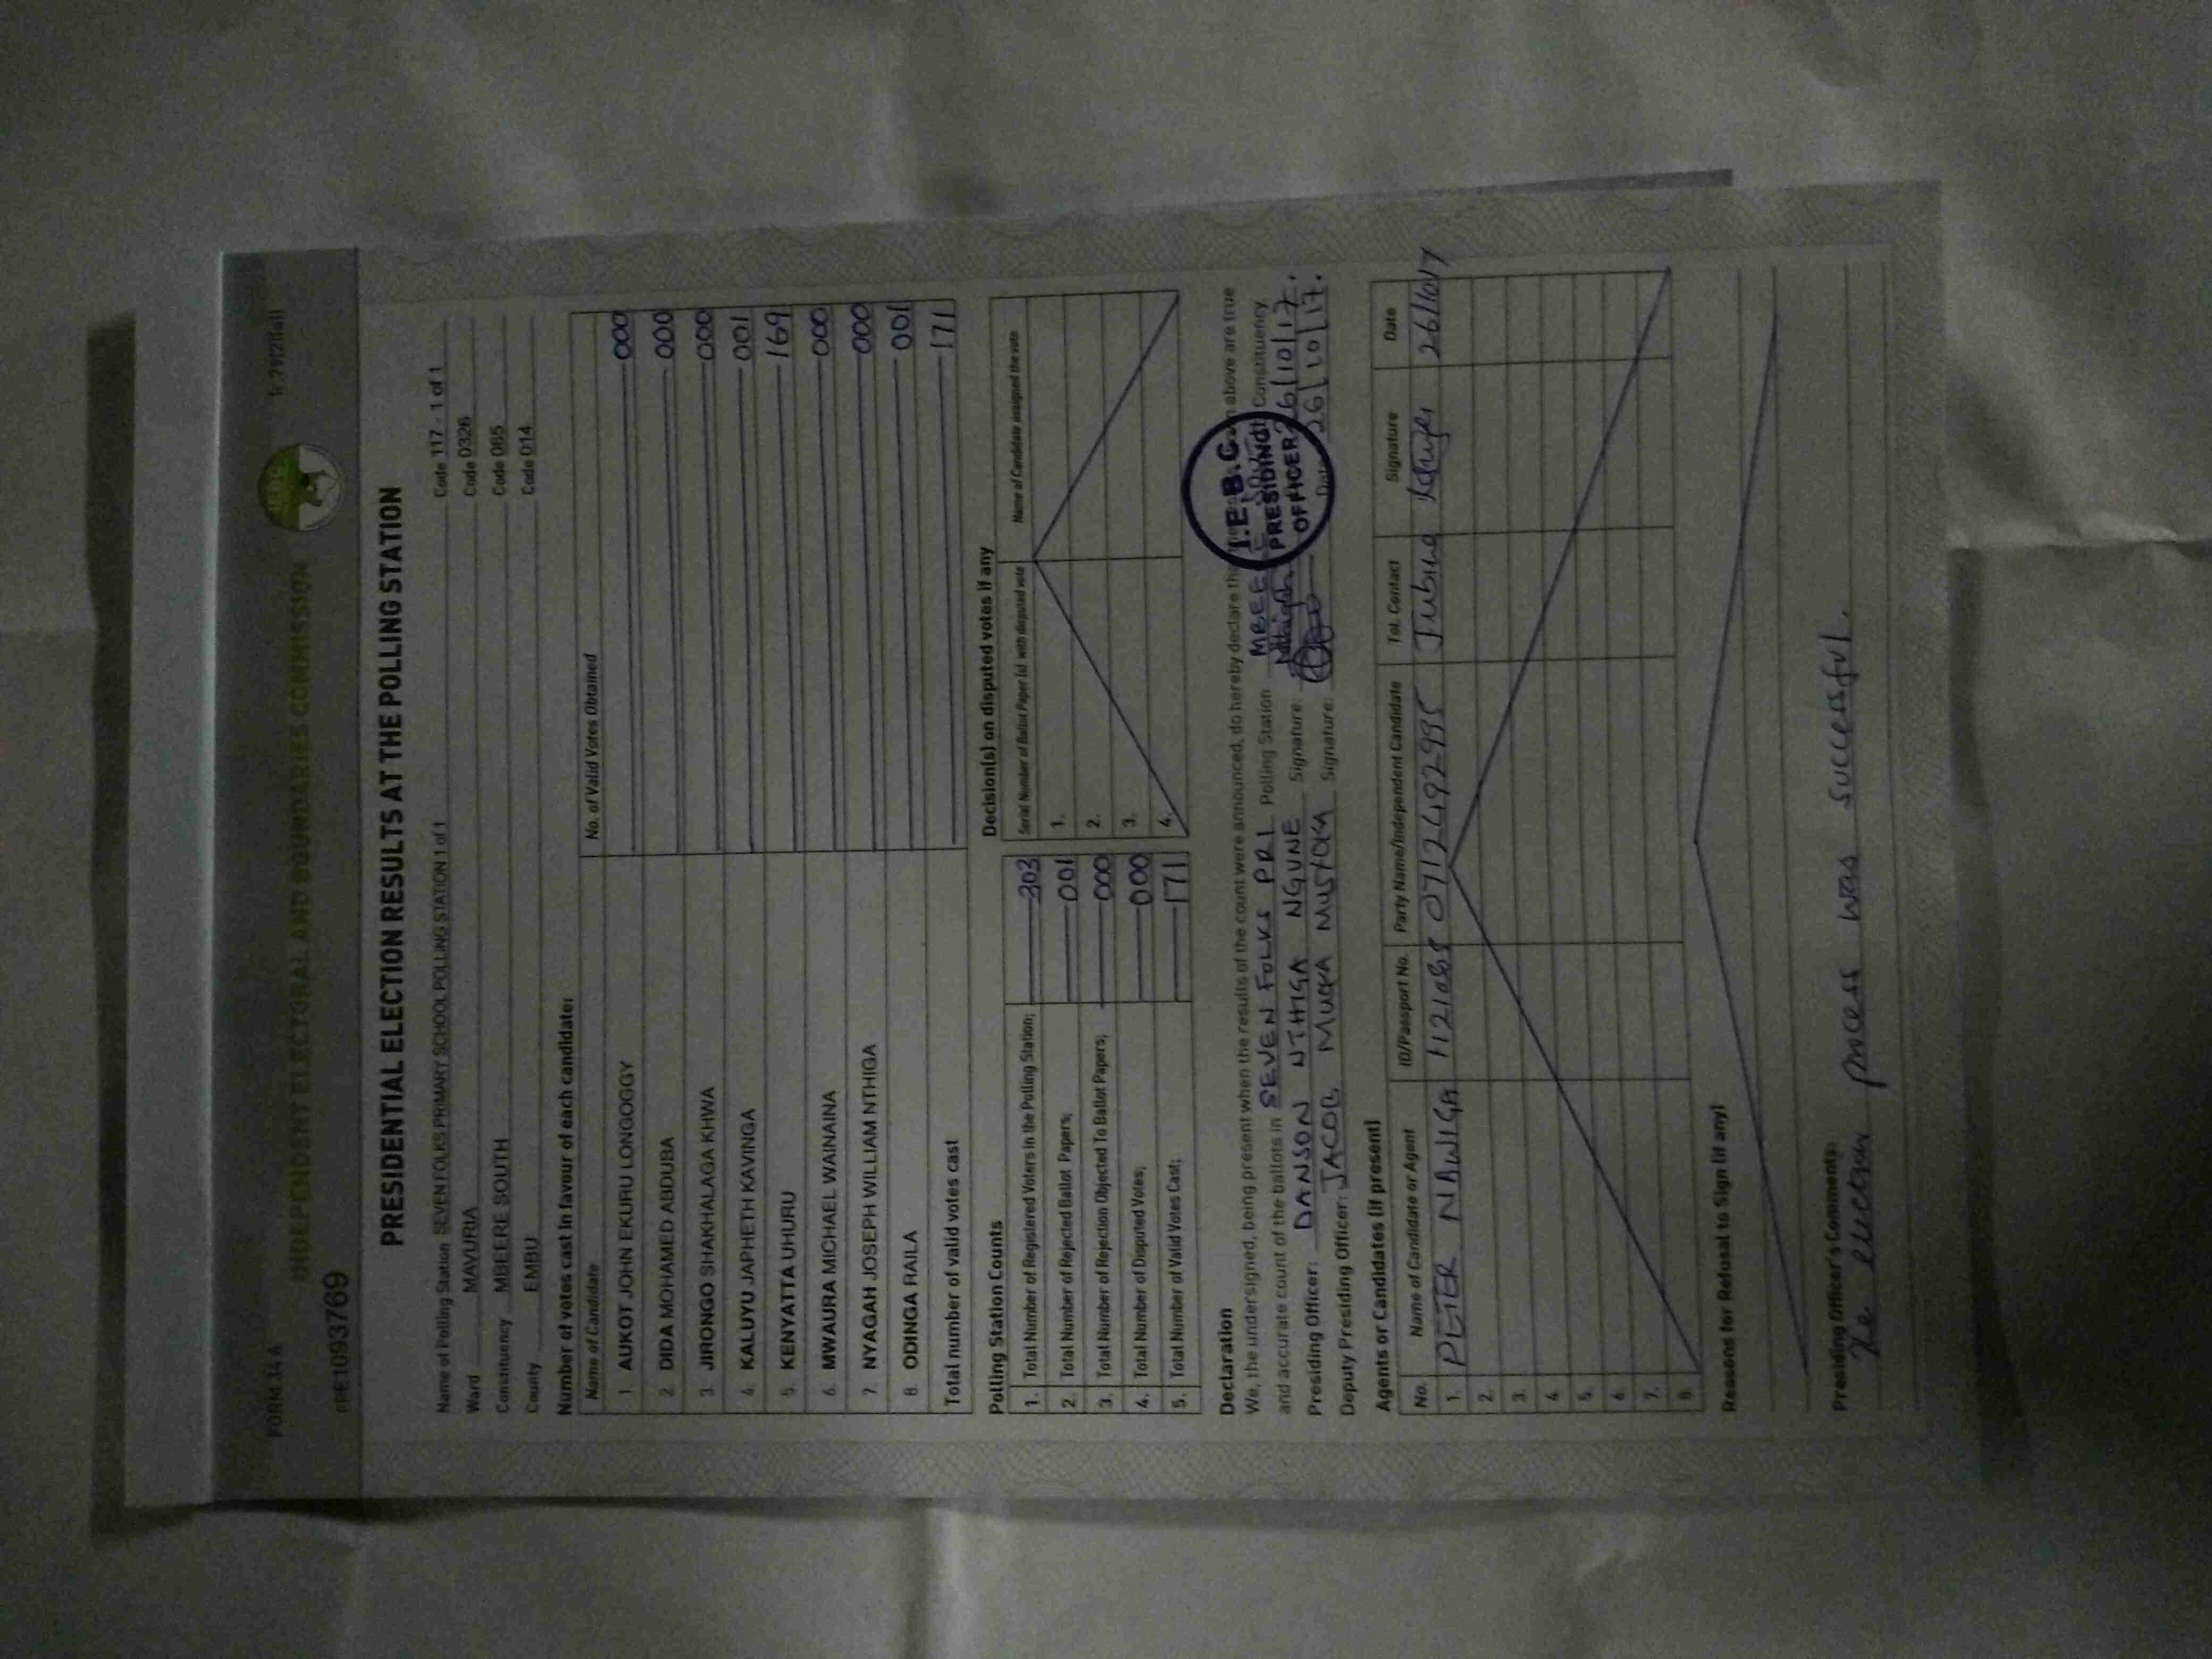 FORM 34 A
INDEPENDENT ELECTORAL AND BOUNDARIES COMMISSION
(r. 79(2)(a))
PRE1093769
PRESIDENTIAL ELECTION RESULTS AT THE POLLING STATION
Name of Polling Station SEVEN FOLKS PRIMARY SCHOOL POLLING STATION 1 of 1 Code 117 - 1 of 1
Ward MAVURIA Code 0326
Constituency MBEERE SOUTH Code 065
County EMBU Code 014
Number of votes cast in favour of each candidate:
Name of Candidate No. of Valid Votes Obtained
1. AUKOT JOHN EKURU LONGOGGY 000
2. DIDA MOHAMED ABDUBA 000
3. JIRONGO SHAKHALAGA KHWA 000
4. KALUYU JAPHETH KAVINGA 001
5. KENYATTA UHURU 169
6. MWAURA MICHAEL WAINAINA 000
7. NYAGAH JOSEPH WILLIAM NTHIGA 000
8. ODINGA RAILA 001
Total number of valid votes cast 171
Polling Station Counts
1. Total Number of Registered Voters in the Polling Station; 303
2. Total Number of Rejected Ballot Papers; 001
3. Total Number of Rejection Objected To Ballot Papers; 000
4. Total Number of Disputed Votes; 000
5. Total Number of Valid Votes Cast; 171
Decision(s) on disputed votes if any
Serial Number of Ballot Paper (s) with disputed vote Name of Candidate assigned the vote
1.
2.
3.
4.
Declaration
We, the undersigned, being present when the results of the count were announced, do hereby declare that above are true
and accurate count of the ballots in SEVEN FOLKS PRI Polling Station Constituency
Presiding Officer: DANSON NTHIGA NGUNE Signature: 26/10/17.
Deputy Presiding Officer: JACOB MUKA MUSYOKA Signature: Date 26/10/17.
I.E.B.C.
PRESIDING
OFFICER
Agents or Candidates (if present)
No. Name of Candidate or Agent ID/Passport No. Party Name/Independent Candidate Tel. Contact Signature Date
1. PETER 0712492995 Jubilee 26/10/17
2.
3.
4.
5.
6.
7.
8.
Reasons for Refusal to Sign (if any)
Presiding Officer's Comments:
The election process was successful.